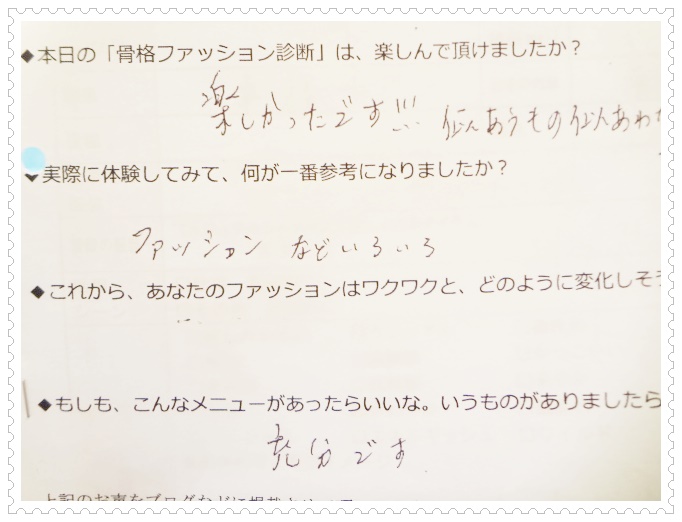 ◆本日の「骨格ファッション診断」は、楽しんで頂けましたか?
楽しかったです!!! 似あうもの似あわ
◆実際に体験してみて、何が一番参考になりましたか?
ファッション などいろいろ
◆これから、あなたのファッションはワクワクと、どのように変化しそう
◆もしも、こんなメニューがあったらいいな。いうものがありましたら
充分です
上記のお声をブログなどに掲載